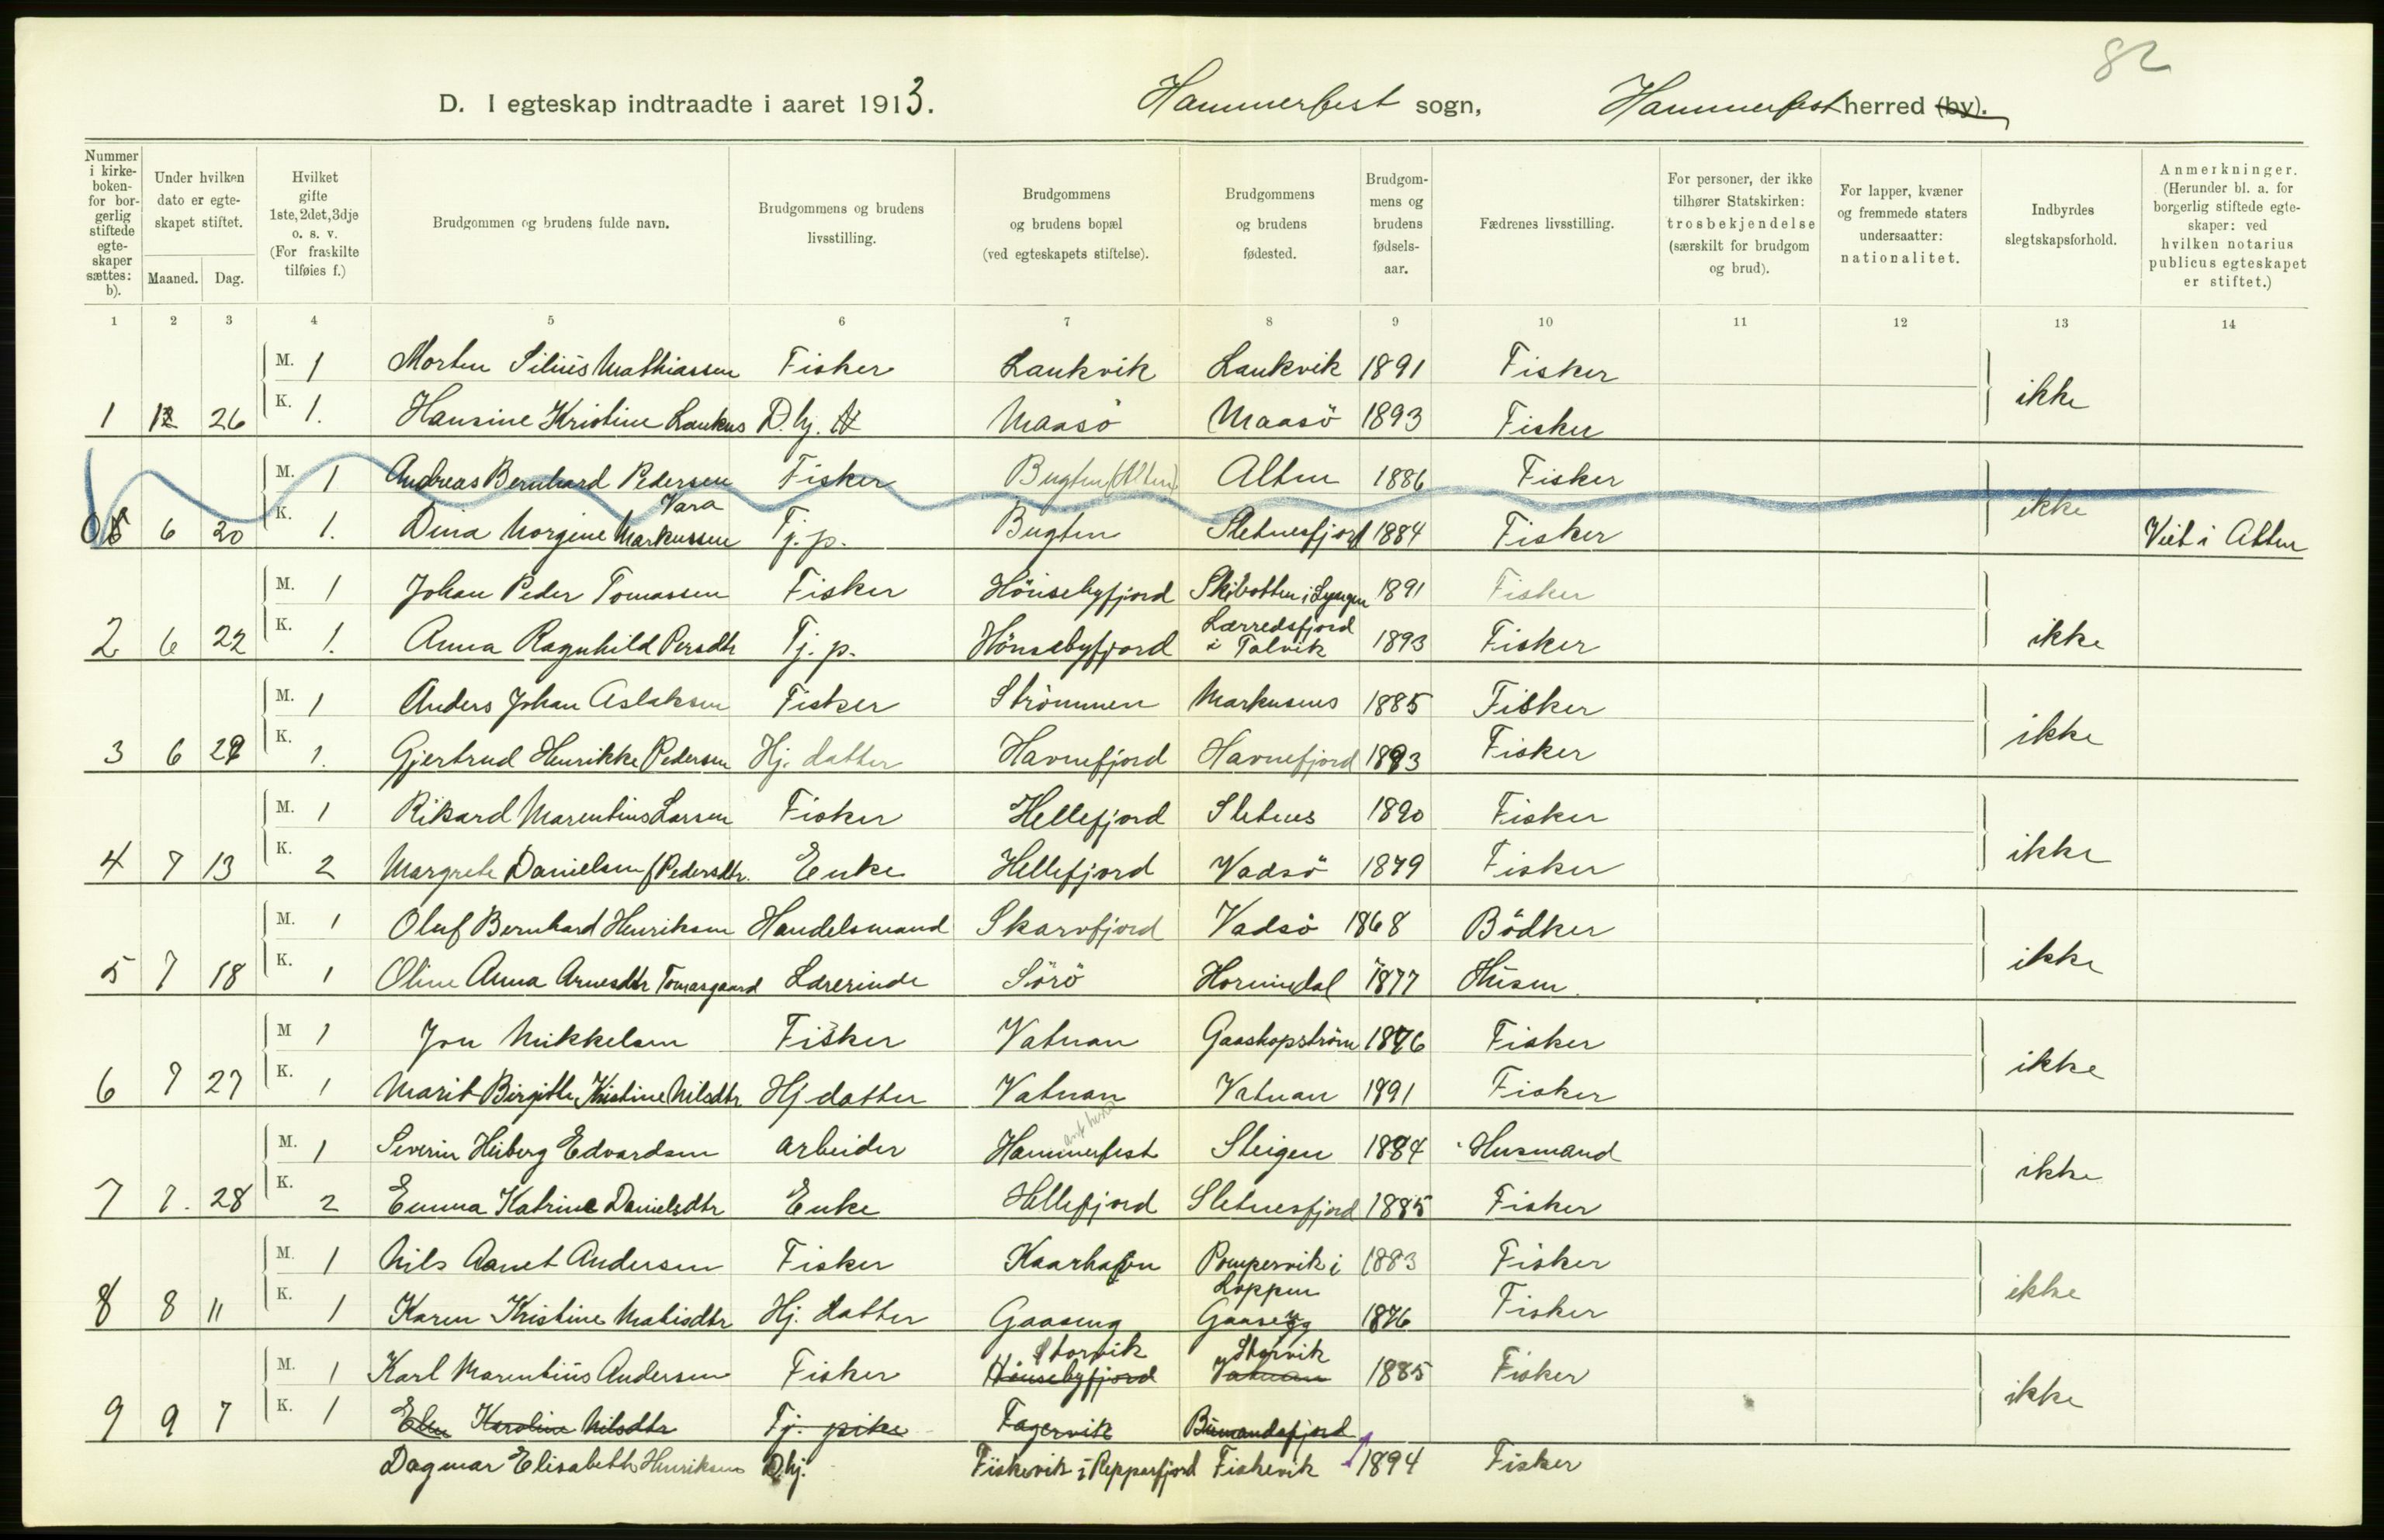 82
D. I egteskap indtraadte i aaret 1913. Hammerfest sogn, Hammerfest herred (by).
Nummer i kirkeboken for borgerlig stiftede egteskaper sættes: b). Under hvilken dato er egteskapet stiftet. Maaned. Dag. Hvilket gifte 1ste, 2det, 3dje o. s. v. (For fraskilte tilføies f.) Brudgommen og brudens fulde navn. Brudgommens og brudens livsstilling. Brudgommens og brudens bopæl (ved egteskapets stiftelse). Brudgommens og brudens fødested. Brudgommens og brudens fødselsaar. Fædrenes livsstilling. For personer, der ikke tilhører Statskirken: trosbekjendelse (særskilt for brudgom og brud). For lapper, kvæner og fremmede staters undersaatter: nationalitet. Indbyrdes slegtskapsforhold. Anmerkninger. (Herunder bl. a. for borgerlig stiftede egteskaper: ved hvilken notarius publicus egteskapet er stiftet.)
1 2 3 4 5 6 7 8 9 10 11 12 13 14
M. 1 Morten Silius Mathiassen Fisker Laukvik Laukvik 1891 Fisker ikke
1 26 K. 1. Hansine Kristine Laukus D. hj. Maasö Maasö 1893 Fisker
M. 1 Andreas Bernhard Pedersen Fisker Bugten (Alten) Alten 1886 Fisker ikke
Vara
6 20 K. 1. Dina Norgine Markussen Tj. p. Bugten Sletnesfjord 1884 Fisker Viet i Alten
M. 1 Johan Peder Tomassen Fisker Hönsebyfjord Skibotten i Lyngen 1891 Fisker ikke
Lærredsfjord
2 6 22 K. 1. Anna Ragnhild Persdtr Tj. p. Hönsebyfjord i Talvik 1893 Fisker
M. 1 Anders Johan Aslaksen Fisker Strömmen Markusnes 1885 Fisker ikke
3 6 29 K. 1. Gjertrud Henrikke Pedersen Hj. datter Havnefjord Havnefjord 1893 Fisker
M. 1 Rikard Marentius Larsen Fisker Hellefjord Sletnes 1890 Fisker ikke
4 7 13 K. 2 Margrete Danielsen f Pedersdtr. Enke Hellefjord Vadsö 1879 Fisker
M. 1 Oluf Bernhard Henriksen Handelsmand Skarvfjord Vadsö 1868 Bödker ikke
5 7 18 K. 1 Oline Anna Arnesdtr Tomasgaard Lærerinde Sörö Hornindal 1877 Husm.
M 1 Jon Mikkelsen Fisker Vatnan Gaashopström 1876 Fisker ikke
6 7 27 K. 1 Marit Birgitte Kristine Nilsdtr Hj datter Vatnan Vatnan 1891 Fisker
M. 1 Severin Heiberg Edvardsen arbeider Hammerfest Steigen 1884 Husmand ikke
7 7. 28 K. 2 Emma Katrine Danielsdtr Enke Hellefjord Sletnesfjord 1885 Fisker
M. 1 Nils Aanet Andersen Fisker Kaarhavn Pompervik i 1883 Fisker ikke
Loppen
8 8 11 K. 1 Karen Kristine Matisdtr Hj. datter Gaaseng Gaaseng 1876 Fisker
Storvik Storvik
M. 1 Karl Marentius Andersen Fisker Hönsebyfjord Vatnan 1885 Fisker ikke
9 9 7 K. 1 Elen Karoline Nilsdtr Tj. pike Fagervik Bismandsfjord
Dagmar Elisabeth Henriksen D. hj. Fiskevik i Repparfjord Fiskevik 1894 Fisker